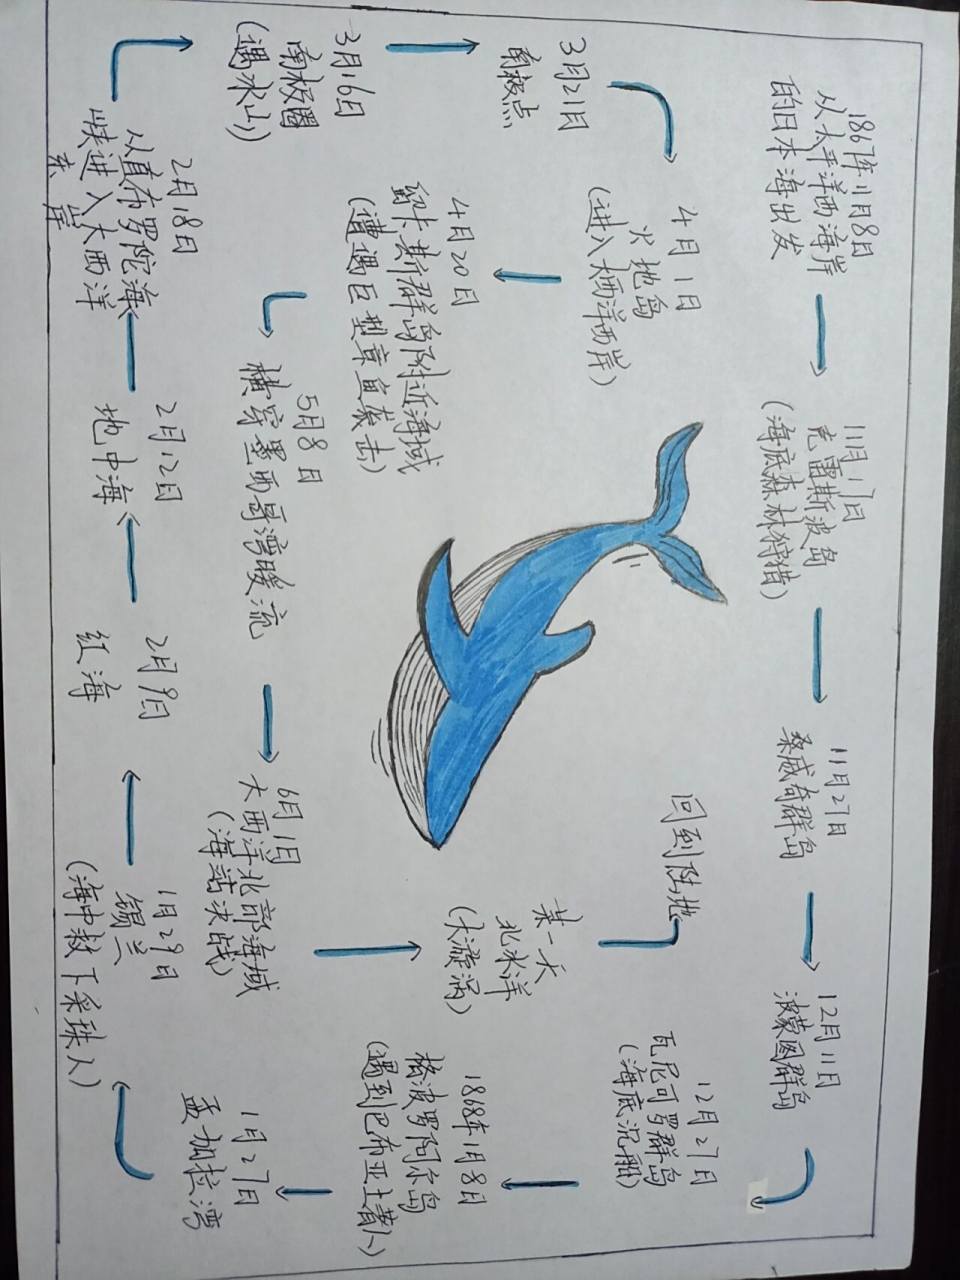 1867年11月8日
从太平洋西海岸
的日本海出发
11月17日
克雷斯波岛
(海底森林狩猎)
11月27日
桑威奇群岛
12月11日
波蒙图群岛
12月27日
瓦尼可罗群岛
(海底沉船)
1868年1月8日
格波罗阿尔岛
(遇到巴布亚土著人)
1月27日
孟加拉湾
1月29日
锡兰
(海中救下采珠人)
2月9日
红海
2月12日
地中海
2月18日
从直布罗陀海
峡进入大西洋
东岸
3月16日
南极圈
(遇冰山)
3月21日
南极点
4月1日
火地岛
(进入大西洋西岸)
4月20日
留卡斯群岛附近海域
(遭遇巨型章鱼袭击)
5月8日
横穿墨西哥湾暖流
6月1日
大西洋北部海域
(海站决战)
某一天
北冰洋
(大漩涡)
回到陆地